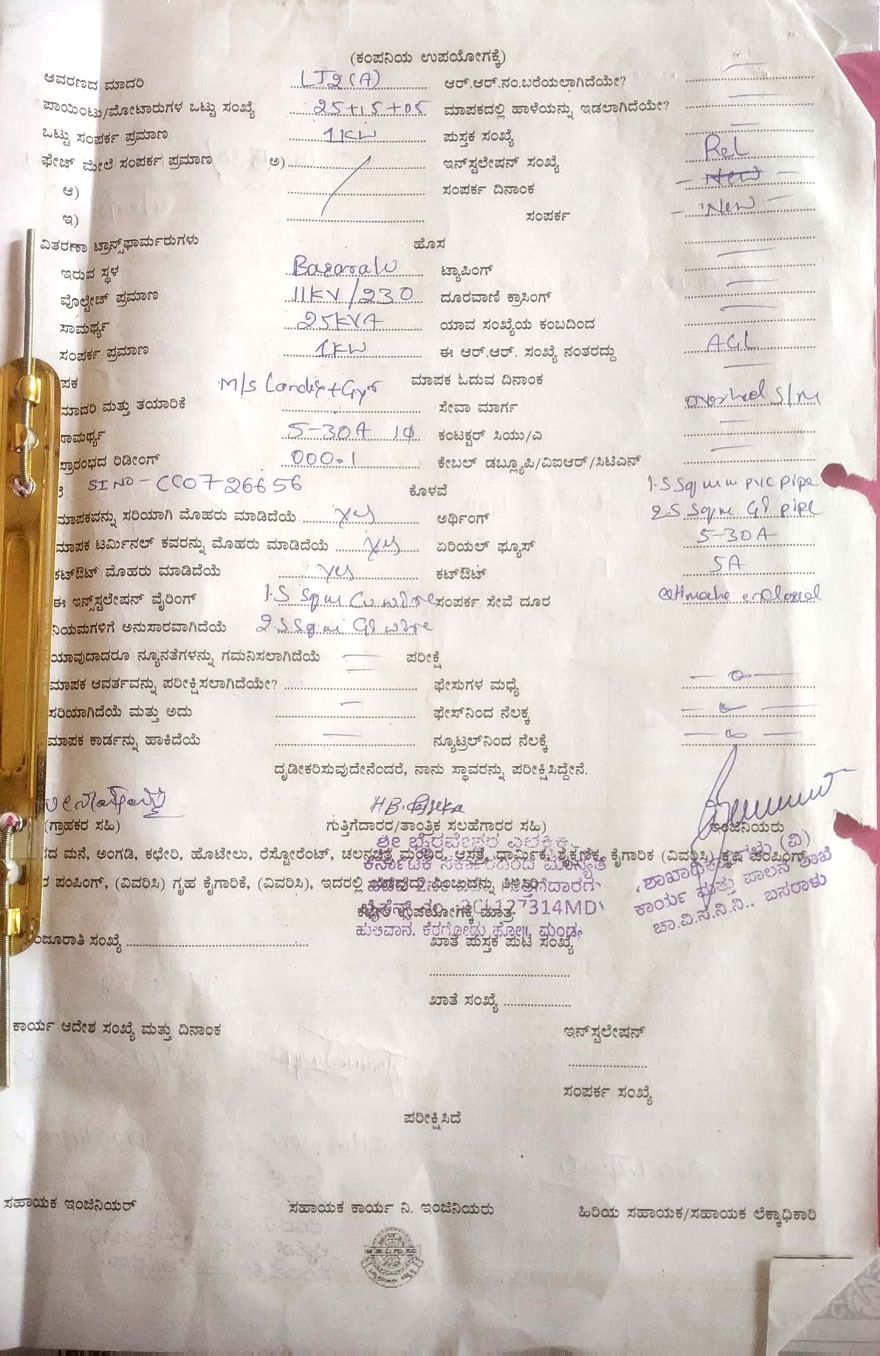 (ಕಂಪನಿಯ ಉಪಯೋಗಕ್ಕೆ)
ಆವರಣದ ಮಾದರಿ LT2(A) ಆರ್.ಆರ್.ನಂ.ಬರೆಯಲಾಗಿದೆಯೇ?
ಪಾಯಿಂಟು/ಮೋಟಾರುಗಳ ಒಟ್ಟು ಸಂಖ್ಯೆ 25+15+05 ಮಾಪಕದಲ್ಲಿ ಹಾಳೆಯನ್ನು ಇಡಲಾಗಿದೆಯೇ?
ಒಟ್ಟು ಸಂಪರ್ಕ ಪ್ರಮಾಣ 1KW ಪುಸ್ತಕ ಸಂಖ್ಯೆ
ಫೇಚ್ ಮೇಲೆ ಸಂಪರ್ಕ ಪ್ರಮಾಣ ಅ) ಇನ್‌ಸ್ಟಲೇಷನ್ ಸಂಖ್ಯೆ Rel
ಆ) ಸಂಪರ್ಕ ದಿನಾಂಕ New
ಇ) ಸಂಪರ್ಕ New
ವಿತರಣಾ ಟ್ರಾನ್ಸ್‌ಫಾರ್ಮರುಗಳು ಹೊಸ
ಇರುವ ಸ್ಥಳ Basaralu ಟ್ಯಾಪಿಂಗ್
ವೊಲ್ಟೇಚ್ ಪ್ರಮಾಣ 11KV/230 ದೂರವಾಣಿ ಕ್ರಾಸಿಂಗ್
ಸಾಮರ್ಥ್ಯ 25KVA ಯಾವ ಸಂಖ್ಯೆಯ ಕಂಬದಿಂದ
ಸಂಪರ್ಕ ಪ್ರಮಾಣ 1KW ಈ ಆರ್.ಆರ್. ಸಂಖ್ಯೆ ನಂತರದ್ದು AGL
ಪಕ M/s Landis+Gyr ಮಾಪಕ ಓದುವ ದಿನಾಂಕ
ಮಾದರಿ ಮತ್ತು ತಯಾರಿಕೆ ಸೇವಾ ಮಾರ್ಗ overhed S/M
ಸಾಮರ್ಥ್ಯ 5-30A 1φ ಕಂಟಕ್ಟರ್ ಸಿಯು/ಎ
ಪ್ರಾರಂಭದ ರಿಡೀಂಗ್ 000.1 ಕೇಬಲ್ ಡಬ್ಲ್ಯೂಪಿ/ವಿಐಆರ್/ಸಿಟಿಎನ್
SI NO - CC0726656 ಕೊಳವೆ 1.5 Sqmm PVC pipe
ಮಾಪಕವನ್ನು ಸರಿಯಾಗಿ ಮೊಹರು ಮಾಡಿದೆಯೆ yes ಅರ್ಥಿಂಗ್ 2.5 Sqm GI pipe
ಮಾಪಕ ಟರ್ಮಿನಲ್ ಕವರನ್ನು ಮೊಹರು ಮಾಡಿದೆಯೆ yes ಏರಿಯಲ್ ಫ್ಯೂಸ್ 5-30A
ಕಟ್‌ಔಟ್ ಮೊಹರು ಮಾಡಿದೆಯೆ yes ಕಟ್‌ಔಟ್ 5A
ಈ ಇನ್‌ಸ್ಟಲೇಷನ್ ವೈರಿಂಗ್ 1.5 Sqm Cu wire ಸಂಪರ್ಕ ಸೇವೆ ದೂರ estimate enclosed
ನಿಯಮಗಳಿಗೆ ಅನುಸಾರವಾಗಿದೆಯೆ 2.5 Sqm GI wire
ಯಾವುದಾದರೂ ನ್ಯೂನತೆಗಳನ್ನು ಗಮನಿಸಲಾಗಿದೆಯೆ ಪರೀಕ್ಷೆ
ಮಾಪಕ ಆವರ್ತವನ್ನು ಪರೀಕ್ಷಿಸಲಾಗಿದೆಯೇ? ಫೇಸುಗಳ ಮಧ್ಯೆ
ಸರಿಯಾಗಿದೆಯೆ ಮತ್ತು ಅದು ಫೇಸ್‌ನಿಂದ ನೆಲಕ್ಕೆ
ಮಾಪಕ ಕಾರ್ಡನ್ನು ಹಾಕಿದೆಯೆ ನ್ಯೂಟ್ರಲ್‌ನಿಂದ ನೆಲಕ್ಕೆ
ದೃಡೀಕರಿಸುವುದೇನೆಂದರೆ, ನಾನು ಸ್ಥಾವರನ್ನು ಪರೀಕ್ಷಿಸಿದ್ದೇನೆ.
(ಗ್ರಾಹಕರ ಸಹಿ) ಗುತ್ತಿಗೆದಾರರ/ತಾಂತ್ರಿಕ ಸಲಹೆಗಾರರ ಸಹಿ) ಇಂಜಿನಿಯರು
ದ ಮನೆ, ಅಂಗಡಿ, ಕಛೇರಿ, ಹೊಟೇಲು, ರೆಸ್ಟೋರೆಂಟ್, ಚಲನಚಿತ್ರ ಮಂದಿರ, ಆಸ್ಪತ್ರೆ, ಧಾರ್ಮಿಕ, ಶೈಕ್ಷಣಿಕ, ಕೈಗಾರಿಕ (ವಿವರಿಸಿ) ಕೃಷಿ ಪಂಪಿಂಗ್
ಪಂಪಿಂಗ್, (ವಿವರಿಸಿ) ಗೃಹ ಕೈಗಾರಿಕೆ, (ವಿವರಿಸಿ), ಇದರಲ್ಲಿ ಯಾವುದು ಎಂಬುದನ್ನು ತಿಳಿಸಿರಿ
ಕಛೇರಿ ಉಪಯೋಗಕ್ಕೆ ಮಾತ್ರ
ಶ್ರೀ ಭೈರವೇಶ್ವರ ಎಲೆಕ್ಟ್ರಿಕ್ಸ್
ಹುಲಿವಾನ. ಕೆರಗೋಡು ಹೋ॥, ಮಂಡ್ಯ
ಶಾಖಾಧಿಕಾರಿ (ವಿ)
ಕಾರ್ಯ ಮತ್ತು ಪಾಲನ ಶಾಖೆ
ಚಾ.ವಿ.ಸ.ನಿ.ನಿ., ಬಸರಾಳು
ಮಂಜೂರಾತಿ ಸಂಖ್ಯೆ ಖಾತೆ ಪುಸ್ತಕ ಪುಟ ಸಂಖ್ಯೆ
ಖಾತೆ ಸಂಖ್ಯೆ
ಕಾರ್ಯ ಆದೇಶ ಸಂಖ್ಯೆ ಮತ್ತು ದಿನಾಂಕ ಇನ್‌ಸ್ಟಲೇಷನ್
ಸಂಪರ್ಕ ಸಂಖ್ಯೆ
ಪರೀಕ್ಷಿಸಿದೆ
ಸಹಾಯಕ ಇಂಜಿನಿಯರ್ ಸಹಾಯಕ ಕಾರ್ಯ ನಿ. ಇಂಜಿನಿಯರು ಹಿರಿಯ ಸಹಾಯಕ/ಸಹಾಯಕ ಲೆಕ್ಕಾಧಿಕಾರಿ